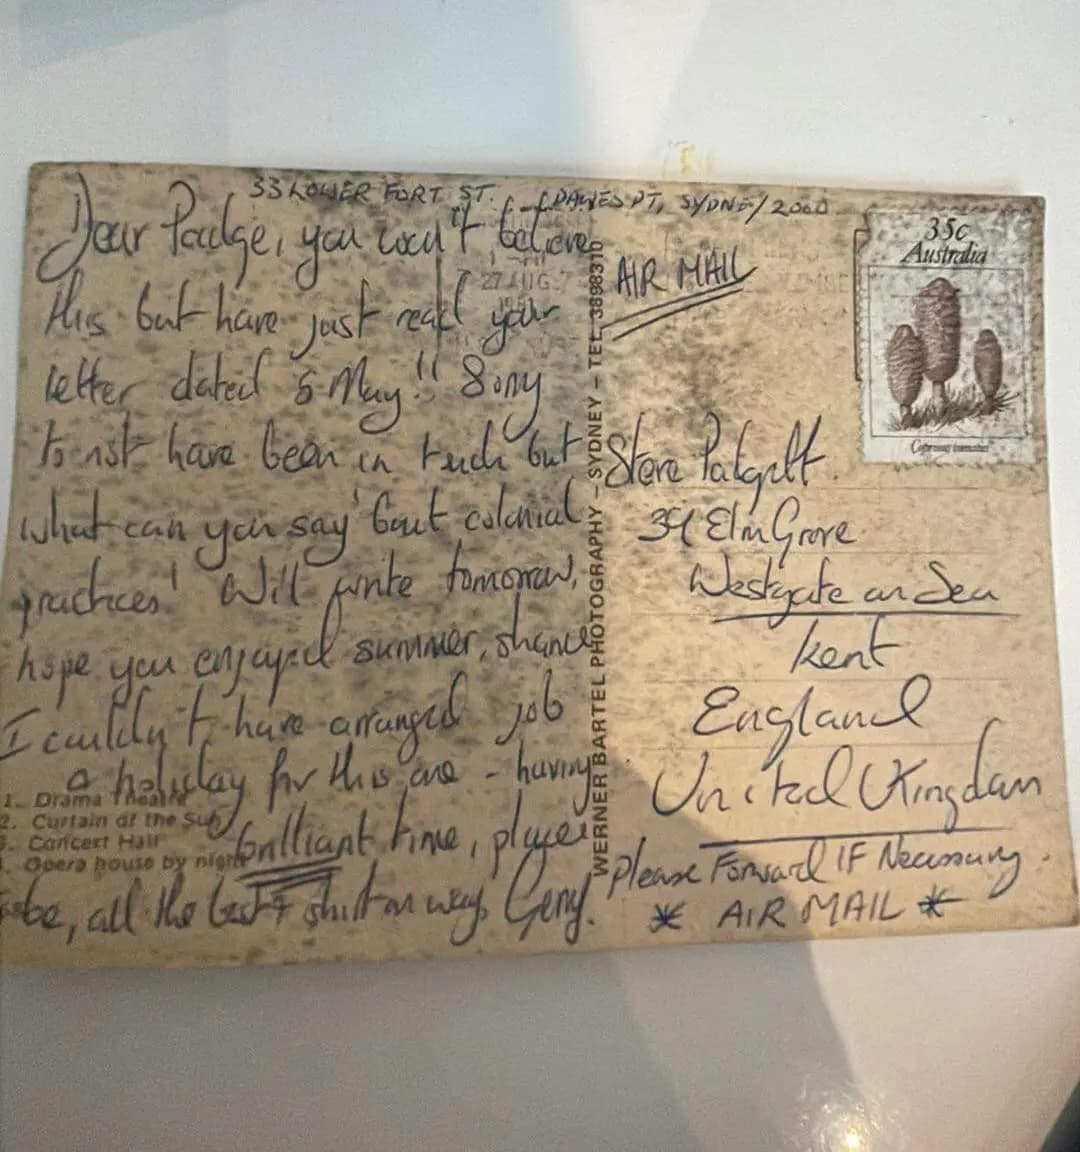 33 LOWER FORT ST. DAWES PT, SYDNEY 2000
Dear Padge, you won't believe
this but have just read your
letter dated 5 May!! Sorry
to not have been in touch but
what can you say 'bout colonial
practices! Will write tomorrow,
hope you enjoyed summer, shame
I couldn't have arranged job
a holiday for this one - having
brilliant time, place
be, all the best & shirt on way, Gerry.
1. Drama Theatre
2. Curtain of the Sun
3. Concert Hall
Opera house by night
WERNER BARTEL PHOTOGRAPHY - SYDNEY - TEL. 3898316
27 AUG
AIR MAIL
35c
Australia
Coprinus comatus
Steve
39 Elm Grove
Westgate on Sea
Kent
England
United Kingdom
Please Forward IF Necessary.
* AIR MAIL *